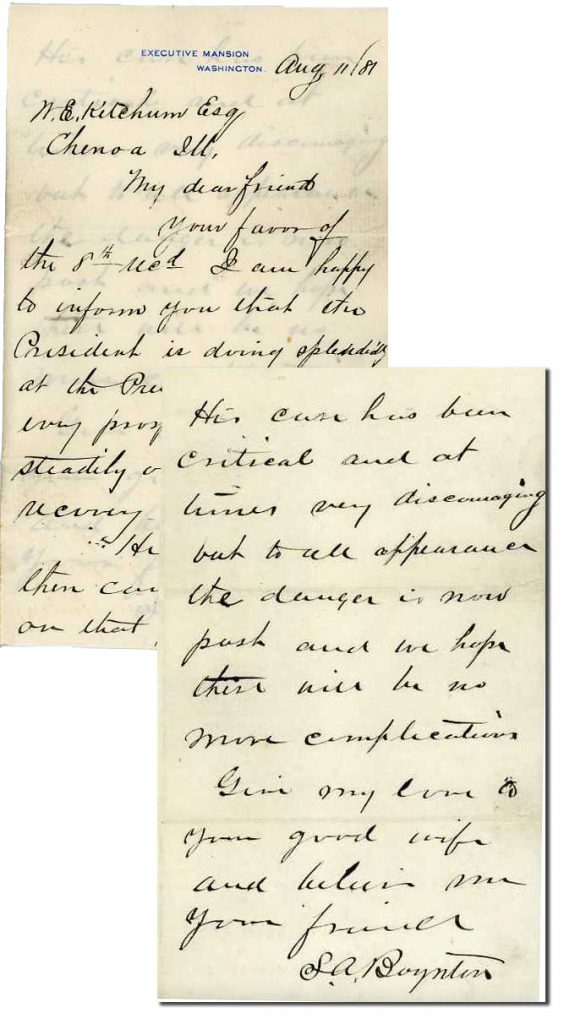 EXECUTIVE MANSION
WASHINGTON.
Aug 11/81
W.E. Ketchum Esq
Chenoa Ill,
My dear friend
Your favor of
the 8th recd I am happy
to inform you that the
President is doing splendidly
at the Pre
every prosp
steadily
recovery
He
then can
on that
His case has been
critical and at
times very discouraging
but to all appearance
the danger is now
past and we hope
there will be no
more complications
Give my love to
your good wife
and believe me
Your friend
S.A. Boynton